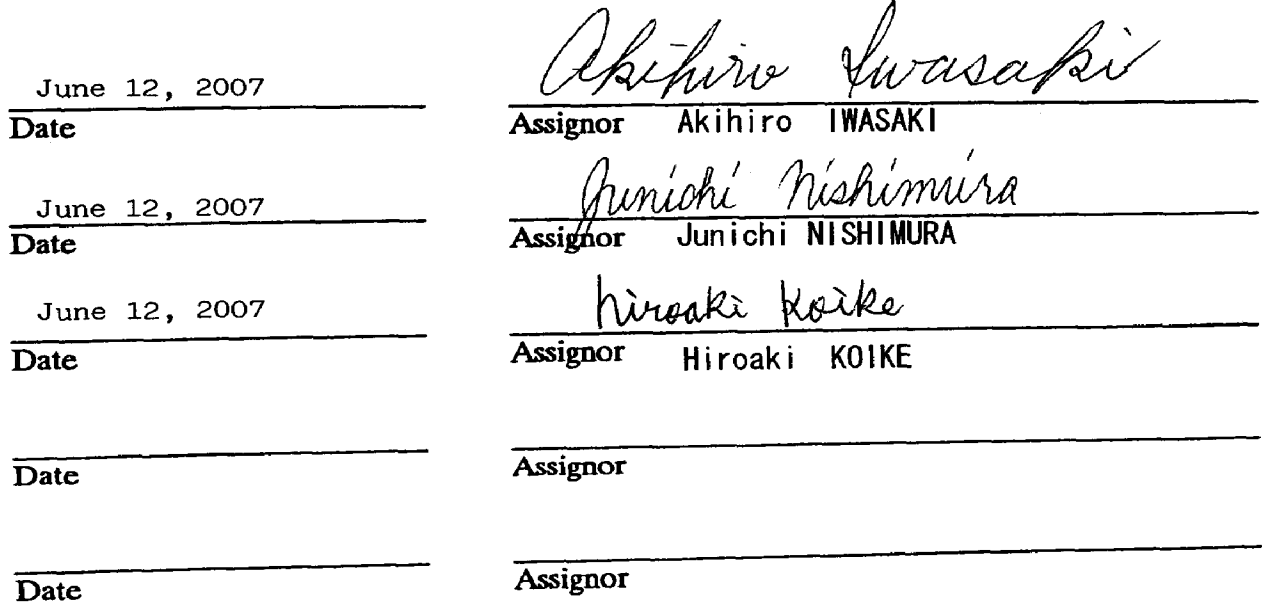 June 12, 2007 Akihiro Iwasaki
Date Assignor Akihiro IWASAKI
June 12, 2007 Junichi Nishimura
Date Assignor Junichi NISHIMURA
June 12, 2007 hiroaki Koike
Date Assignor Hiroaki KOIKE
Date Assignor
Date Assignor